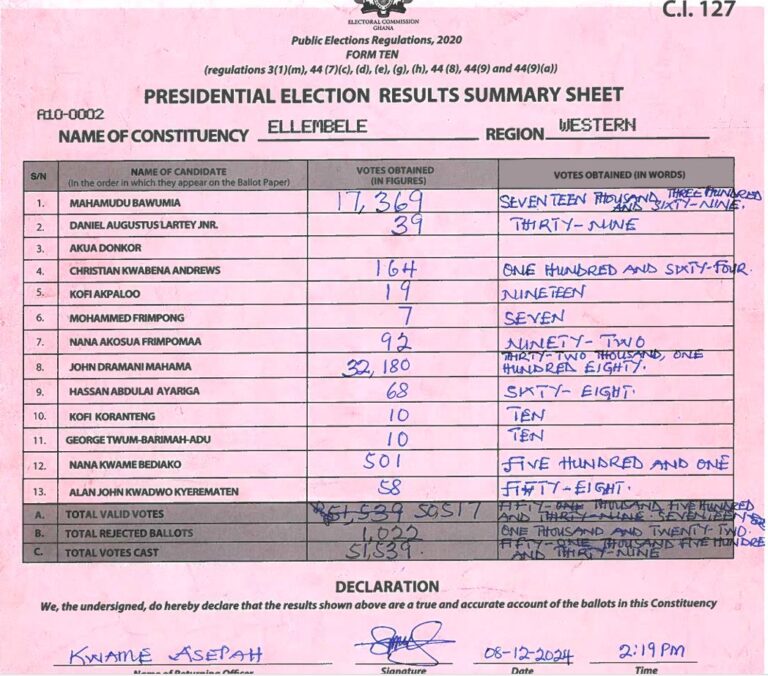 C.I. 127
ELECTORAL COMMISSION
GHANA
Public Elections Regulations, 2020
FORM TEN
(regulations 3(1)(m), 44 (7)(c), (d), (e), (g), (h), 44 (8), 44(9) and 44(9)(a))
PRESIDENTIAL ELECTION RESULTS SUMMARY SHEET
A10-0002
NAME OF CONSTITUENCY ELLEMBELE REGION WESTERN
S/N NAME OF CANDIDATE (In the order in which they appear on the Ballot Paper) VOTES OBTAINED (IN FIGURES) VOTES OBTAINED (IN WORDS)
1. MAHAMUDU BAWUMIA 17,369 SEVENTEEN THOUSAND, THREE HUNDRED AND SIXTY-NINE.
2. DANIEL AUGUSTUS LARTEY JNR. 39 THIRTY-NINE
3. AKUA DONKOR
4. CHRISTIAN KWABENA ANDREWS 164 ONE HUNDRED AND SIXTY-FOUR.
5. KOFI AKPALOO 19 NINETEEN
6. MOHAMMED FRIMPONG 7 SEVEN
7. NANA AKOSUA FRIMPOMAA 92 NINETY-TWO
8. JOHN DRAMANI MAHAMA 32,180 THIRTY-TWO THOUSAND, ONE HUNDRED EIGHTY.
9. HASSAN ABDULAI AYARIGA 68 SIXTY-EIGHT.
10. KOFI KORANTENG 10 TEN
11. GEORGE TWUM-BARIMAH-ADU 10 TEN
12. NANA KWAME BEDIAKO 501 FIVE HUNDRED AND ONE
13. ALAN JOHN KWADWO KYEREMATEN 58 FIFTY-EIGHT.
A. TOTAL VALID VOTES 51,539 50,517 FIFTY-ONE THOUSAND FIVE HUNDRED AND THIRTY-NINE SEVENTEEN
B. TOTAL REJECTED BALLOTS 1,022 ONE THOUSAND AND TWENTY-TWO.
C. TOTAL VOTES CAST 51,539. FIFTY-ONE THOUSAND FIVE HUNDRED AND THIRTY-NINE
DECLARATION
We, the undersigned, do hereby declare that the results shown above are a true and accurate account of the ballots in this Constituency
KWAME ASEPAH 08-12-2024 2:19PM
Name of Returning Officer Signature Date Time